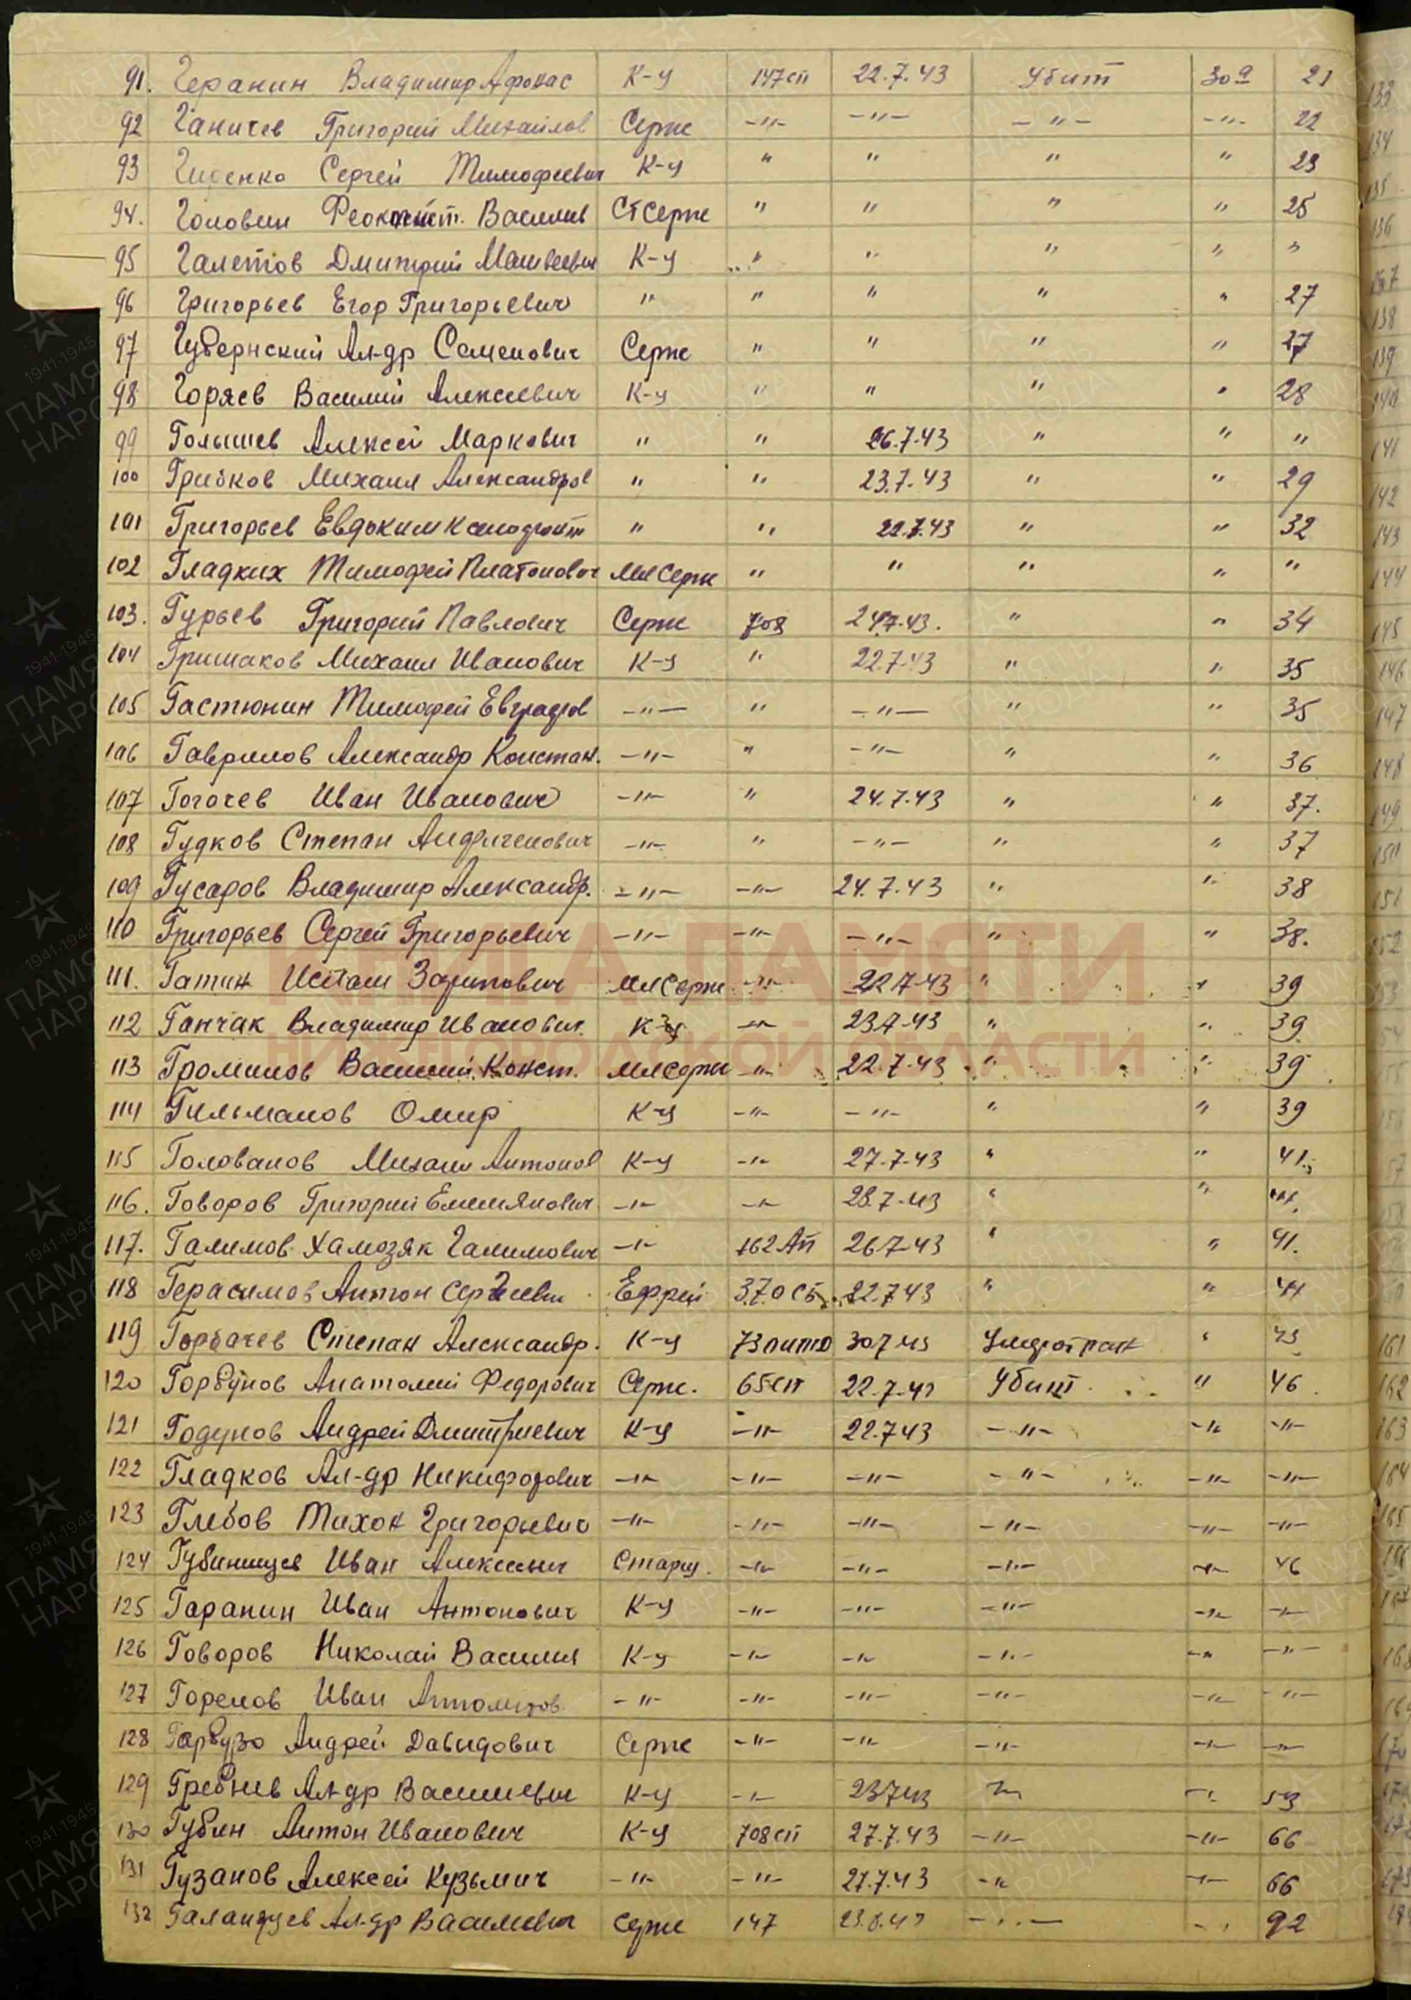 91. Геранин Владимир Афонас К-ц 147сп 22.7.43 Убит 309 21
92 Ганичев Григорий Михайлов Серж -"- -"- -"- -"- 22
93 Сергей Тимофеевич К-ц " " " " 23
94. Головин Феоктист. Василив СтСерж " " " " 25
95 Галетов Дмитрий Матвеевич К-ц " " " " "
96 Григорьев Егор Григорьевич " " " " " 27
97 Губернский Ал-др Семенович Серж " " " " 27
98 Горяев Василий Алексеевич К-ц " " " " 28
99 Голышев Алексей Маркович " " 26.7.43 " " "
100 Грибков Михаил Александров " " 23.7.43 " " 29
101 Григорьев Евдоким " " 22.7.43 " " 32
102 Гладких Тимофей Платонович МлСерж " " " " "
103. Гурьев Григорий Павлович Серж 708 24.7.43. " " 34
104 Гришаков Михаил Иванович К-ц " 22.7.43 " " 35
105 Гастюнин Тимофей Евграфов -"- " -"- " " 35
106 Гаврилов Александр Констан. -"- " -"- " " 36
107 Гогочев Иван Иванович -"- " 24.7.43 " " 37.
108 Гудков Степан -"- " -"- " " 37
109 Гусаров Владимир Александр. -"- -"- 24.7.43 " " 38
110 Григорьев Сергей Григорьевич -"- -"- -"- " " 38.
111. Гатин Ислам Зарипович МлСерж -"- 22.7.43 " " 39
112 Ганчак Владимир Иванович. К-ц -"- 23.7.43 " " 39
113 Громилов Василий Конст. МлСерж -"- 22.7.43 " " 39
114 Гильманов Омир К-ц -"- -"- " " 39
115 Голованов Михаил Антонов К-ц -"- 27.7.43 " " 41.
116. Говоров Григорий Емельянович -"- -"- 28.7.43 " "
117. Галимов Хамозяк Галимович -"- 162 Ап 26.7.43 " " 41.
118 Герасимов Антон Сергеевич Ефрей 370 22.7.43 " "
119 Горбачев Степан Александр. К-ц 73 30.7.43 " 43
120 Горбунов Анатолий Федорович Серж. 65сп 22.7.43 Убит " 46
121 Годунов Андрей Дмитриевич К-ц -"- 22.7.43 -"- -"- -"-
122 Гладков Ал-др Никифорович -"- -"- -"- -"- -"- -"-
123 Глебов Тихон Григорьевич -"- -"- -"- -"- -"- -"-
124 Иван Алексеевич Старш. -"- -"- -"- -"- 46
125 Гаранин Иван Антонович К-ц -"- -"- -"- -"- -"-
126 Говоров Николай Василия К-ц -"- -"- -"- -"- -"-
127 Горелов Иван -"- -"- -"- -"- -"- -"-
128 Гарбузо Андрей Давидович Серж -"- -"- -"- -"- -"-
129 Гребнев Ал-др Васильевич К-ц -"- 23.7.43 -"- -"- 53
130 Губин Антон Иванович К-ц 708сп 27.7.43 -"- -"- 66
131 Гузанов Алексей Кузьмич -"- -"- 27.7.43 -"- -"- 66
132 Галандцев Ал-др Василевич Серж 147 -"- -"- 92
КНИГА ПАМЯТИ
НИЖЕГОРОДСКОЙ ОБЛАСТИ